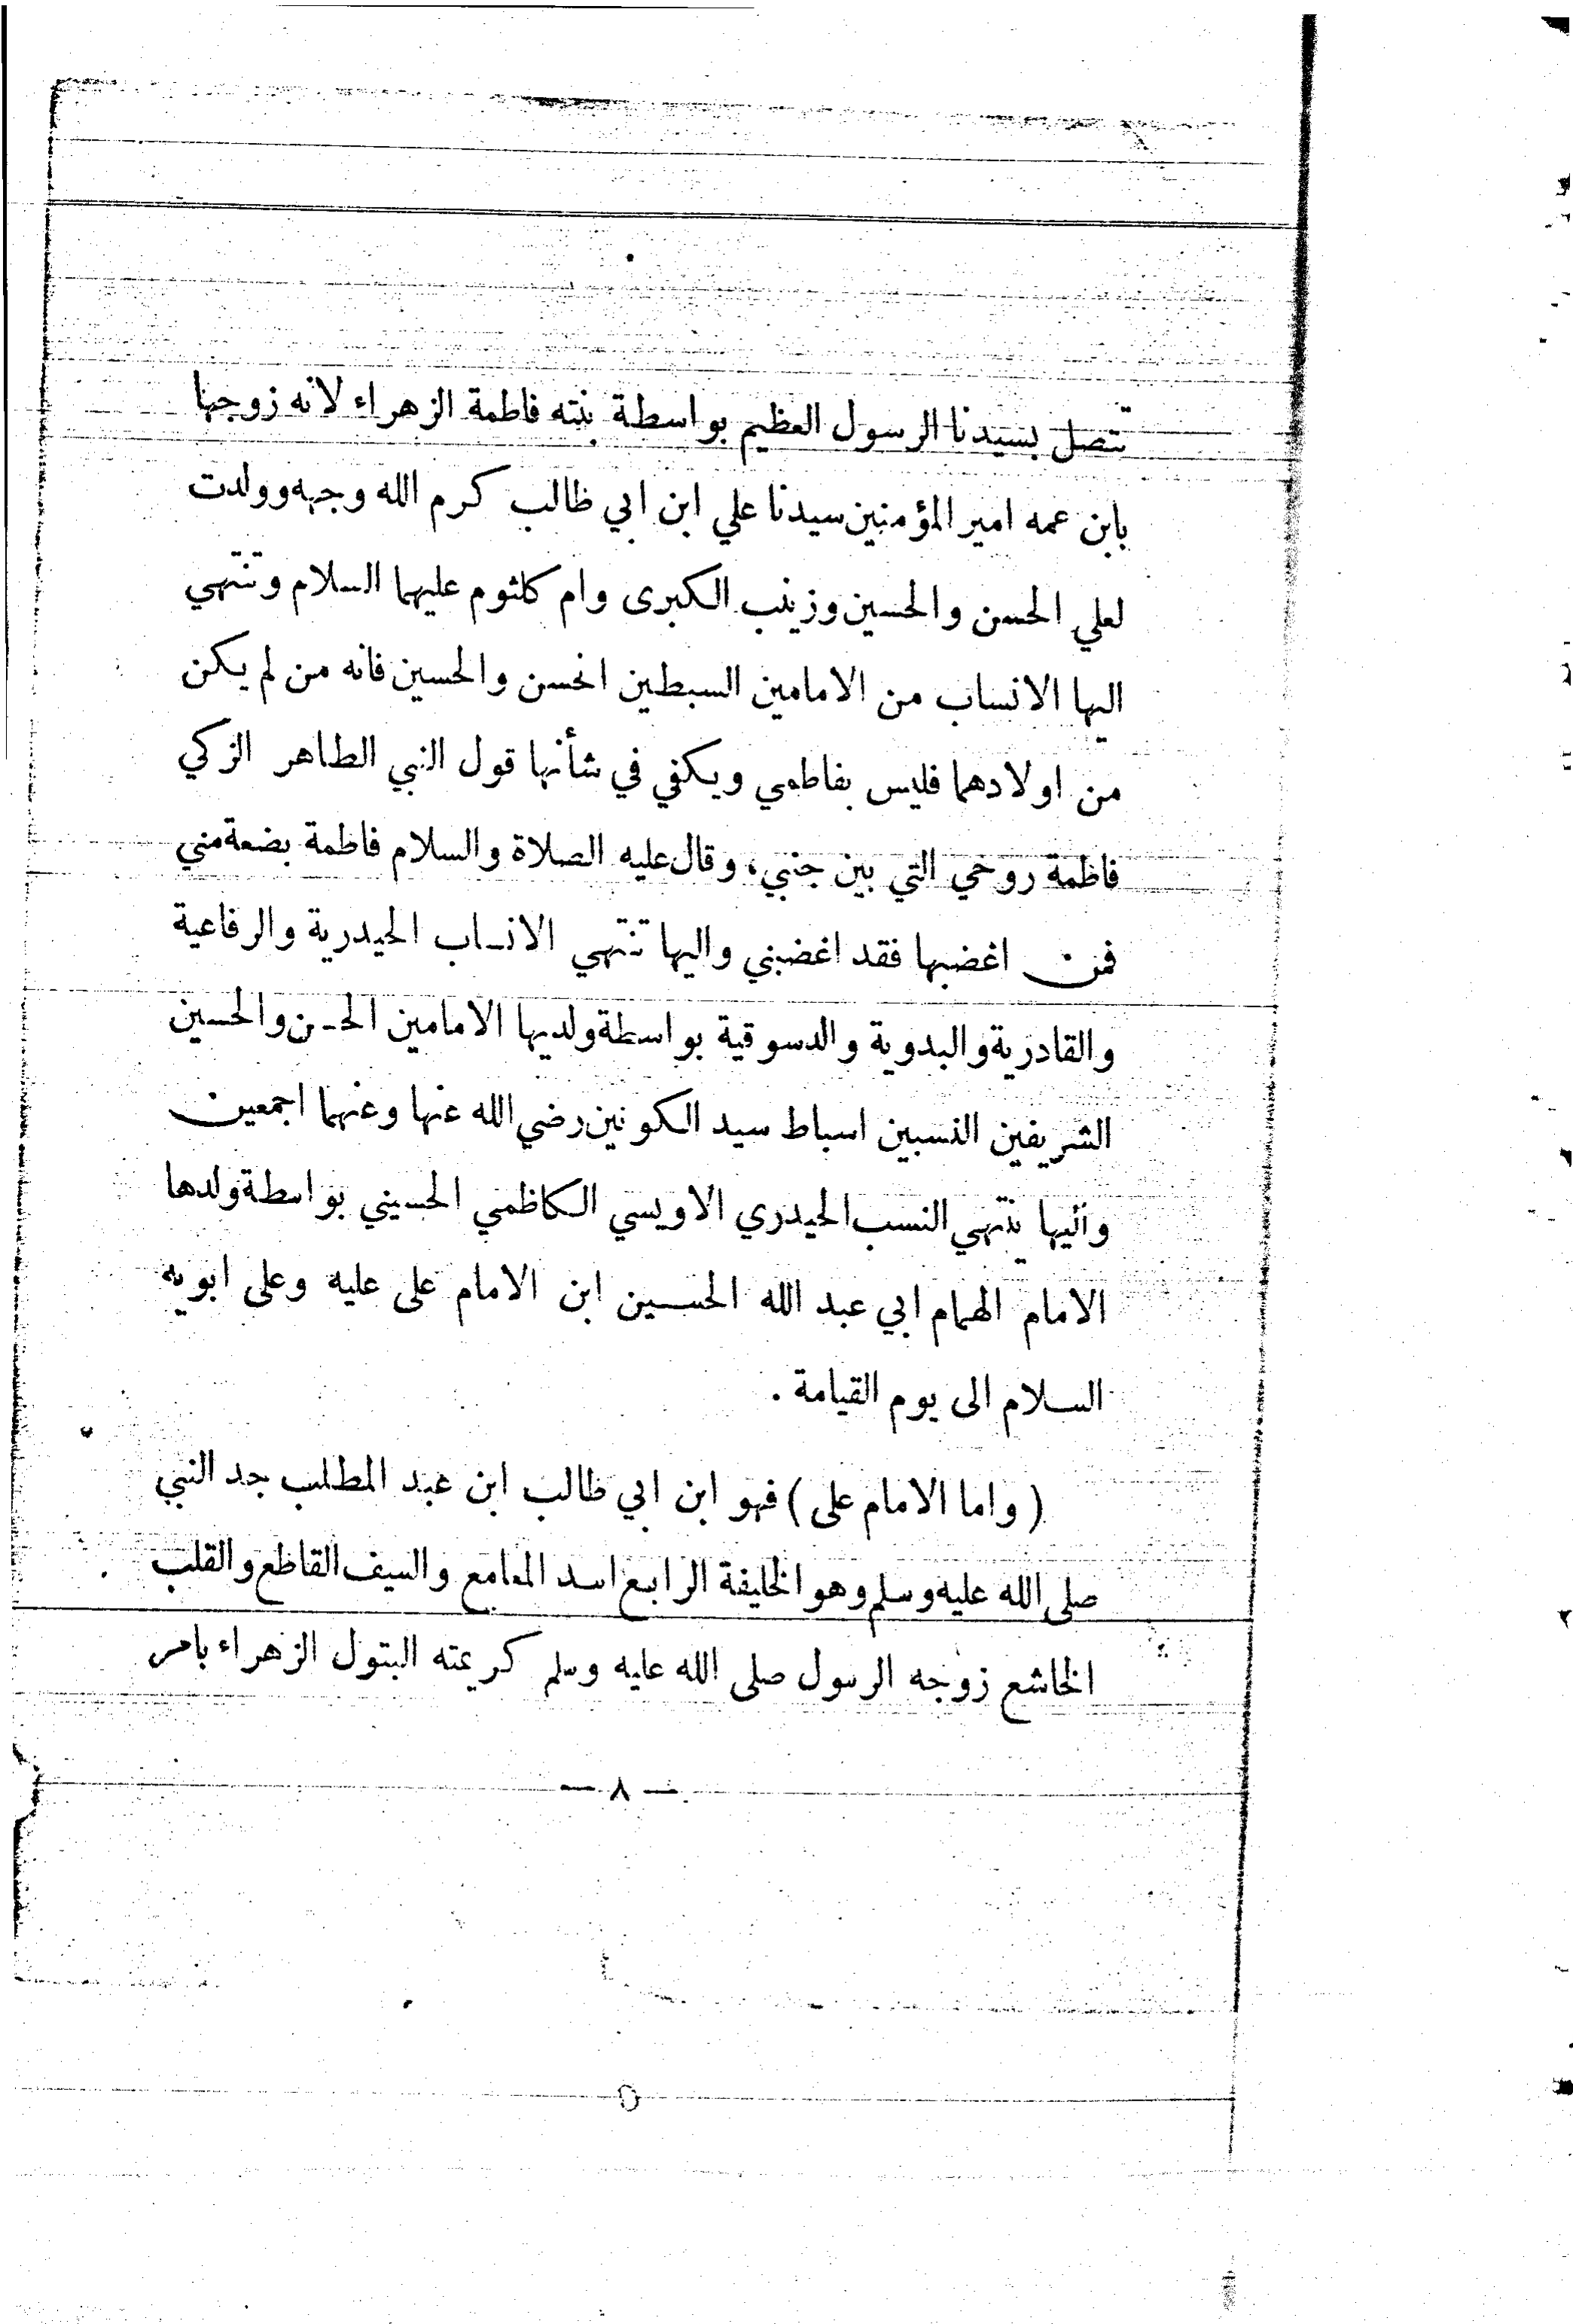 تتصل بسيدنا الرسول العظيم بواسطة بنته فاطمة الزهراء لانه زوجها
بابن عمه امير المؤمنين سيدنا علي ابن ابي طالب كرم الله وجهه وولدت
لعلي الحسن والحسين وزينب الكبرى وام كلثوم عليهما السلام وتنتهي
اليها الانساب من الامامين السبطين الحسن والحسين فانه من لم يكن
من اولادهما فليس بفاطمي ويكفي في شأنها قول النبي الطاهر الزكي
فاطمة روحي التي بين جنبي، وقال عليه الصلاة والسلام فاطمة بضعة مني
فمن اغضبها فقد اغضبني واليها تنتهي الانساب الحيدرية والرفاعية
والقادرية والبدوية والدسوقية بواسطة ولديها الامامين الحسن والحسين
الشريفين النسبين اسباط سيد الكونين رضي الله عنها وعنهما اجمعين
واليها ينتهي النسب الحيدري الاويسي الكاظمي الحسيني بواسطة ولدها
الامام الهمام ابي عبد الله الحسين ابن الامام على عليه وعلى ابويه
السلام الى يوم القيامة .
( واما الامام على ) فهو ابن ابي طالب ابن عبد المطلب جد النبي
صلى الله عليه وسلم وهو الخليفة الرابع اسد المعامع والسيف القاطع والقلب
الخاشع زوجه الرسول صلى الله عليه وسلم كريمته البتول الزهراء بامر
— ٨ —